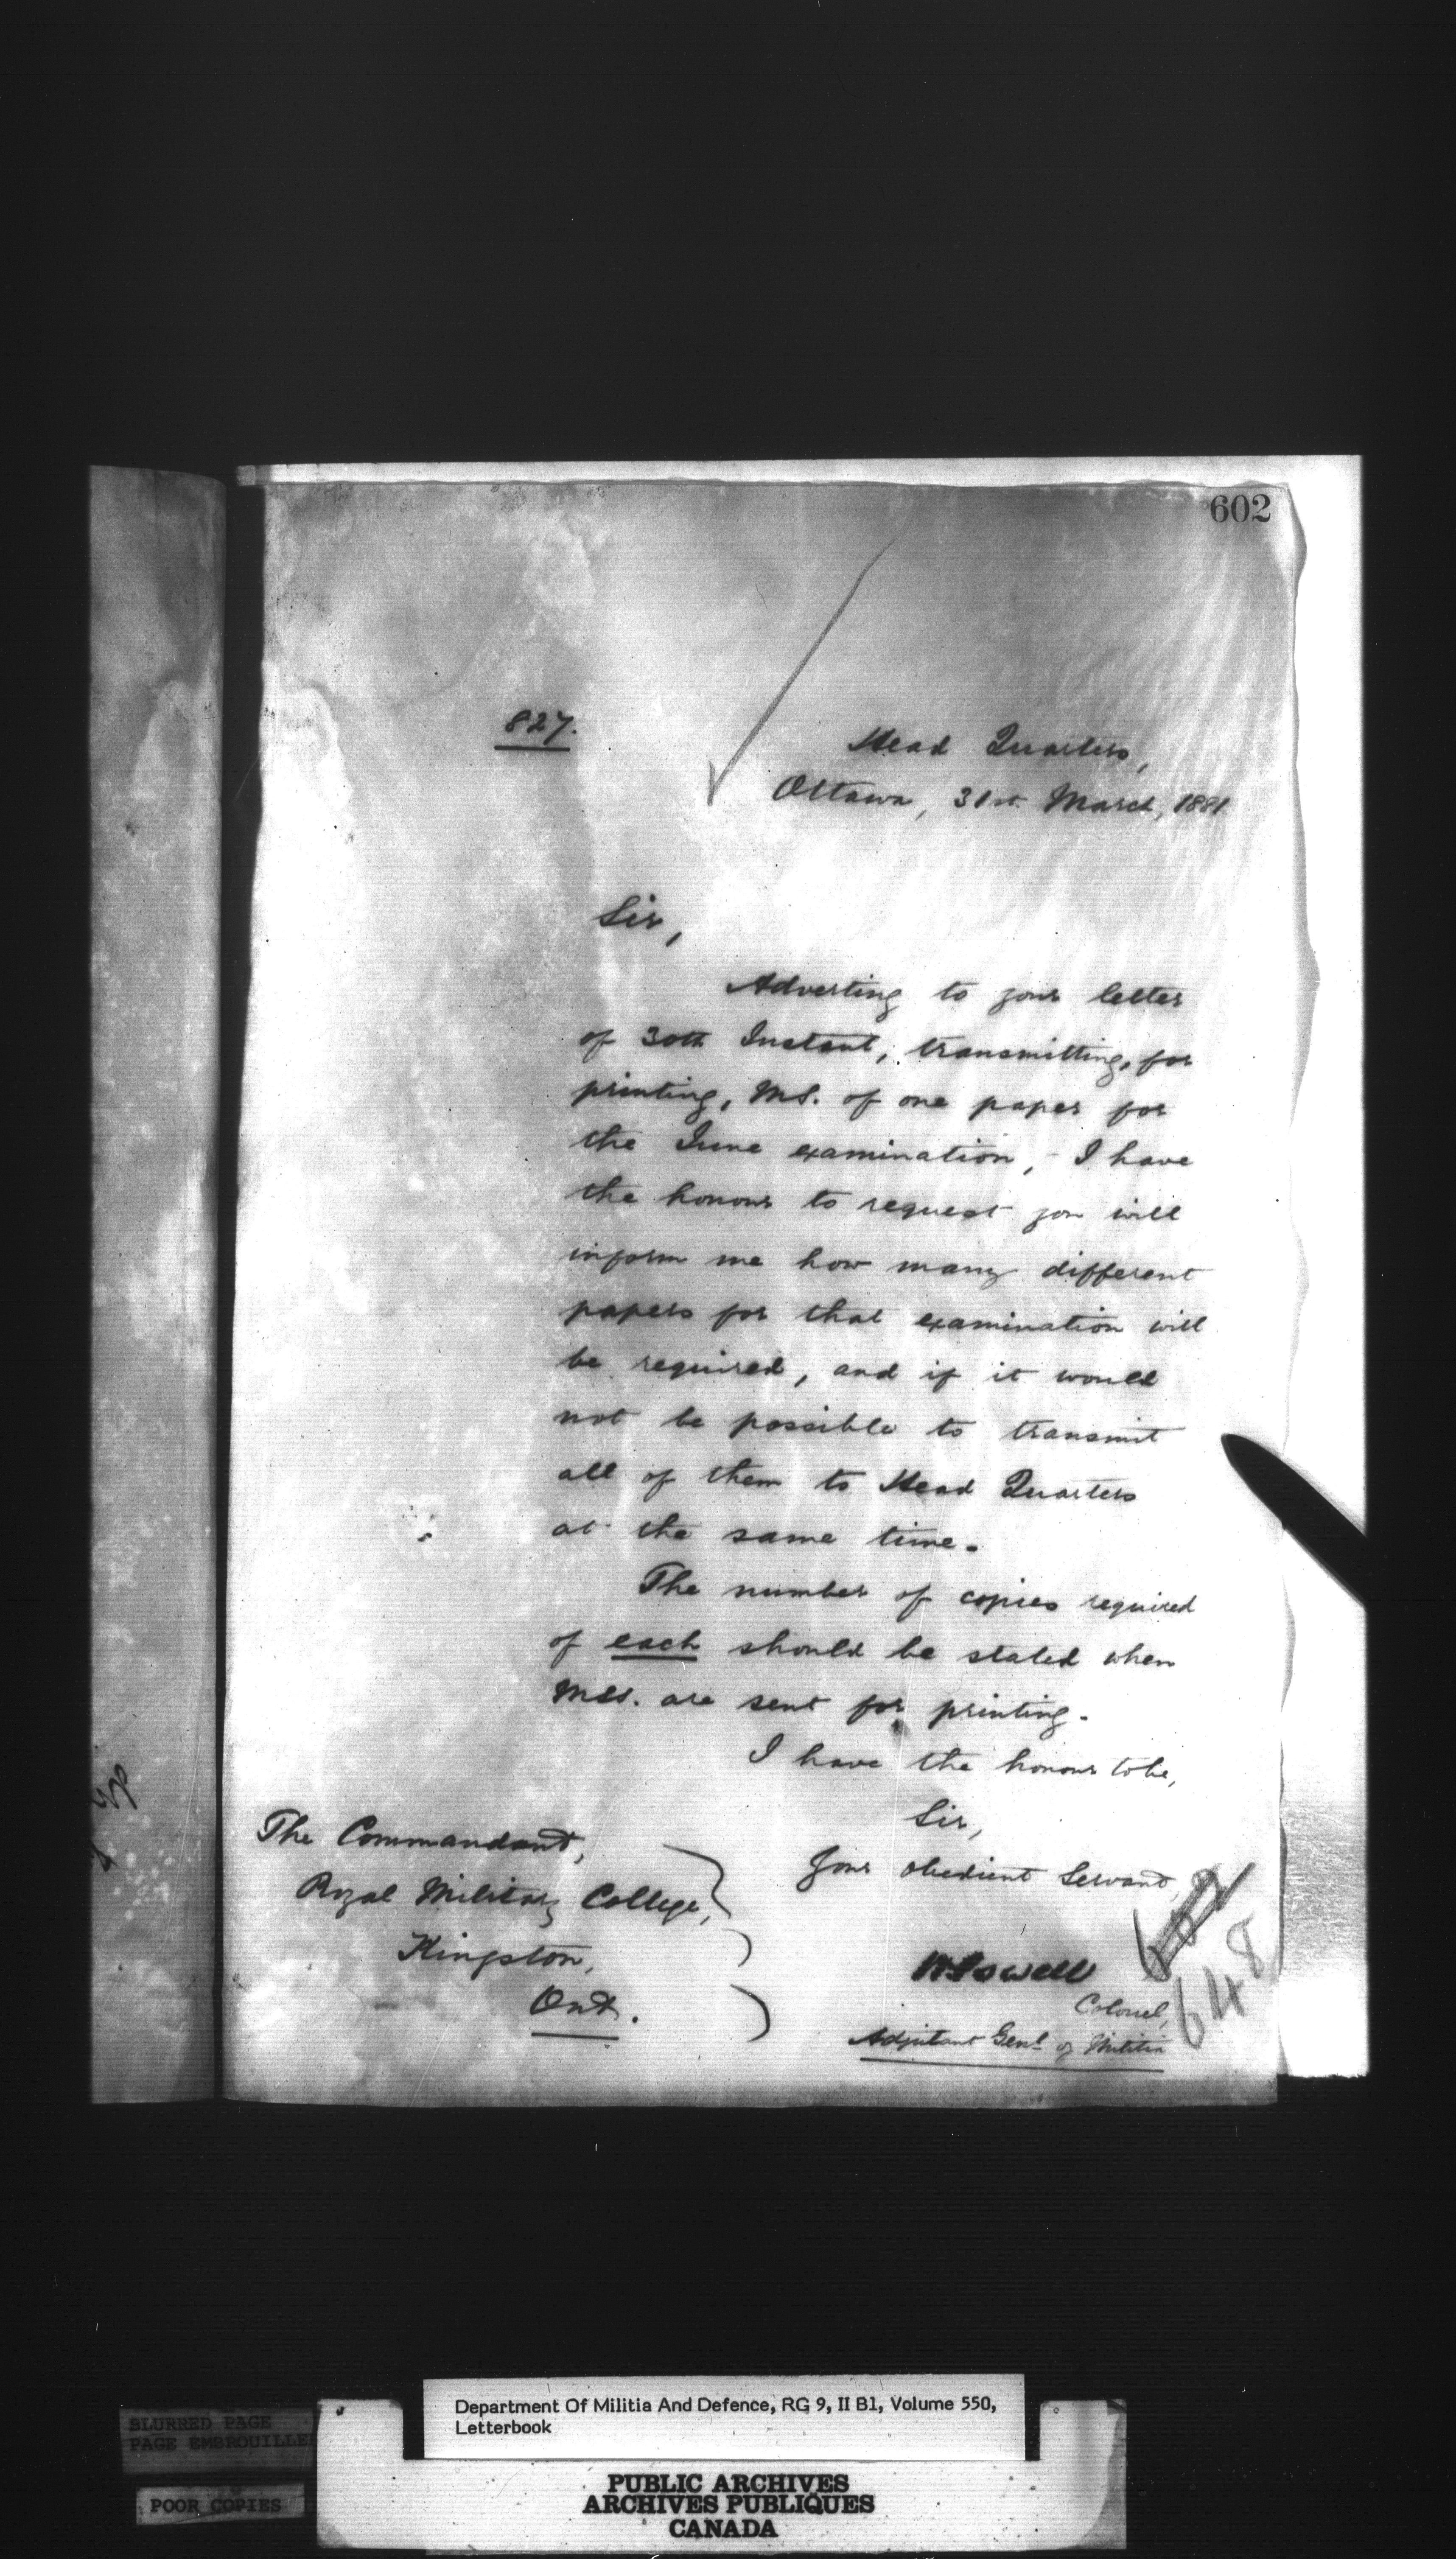 602
827.
Head Quarters,
Ottawa, 31st March, 1881
Sir,
Adverting to your letter
of 30th Instant, transmitting, for
printing, MS. of one paper for
the June examination, - I have
the honour to request you will
inform me how many different
papers for that examination will
be required, and if it would
not be possible to transmit
all of them to Head Quarters
at the same time.
The number of copies required
of each should be stated when
MSS. are sent for printing.
I have the honour to be,
Sir,
Your obedient Servant,
WPowell
Colonel,
Adjutant Genl of Militia
648
The Commandant,
Royal Military College,
Kingston,
Ont.
Department Of Militia And Defence, RG 9, II B1, Volume 550,
Letterbook
BLURRED PAGE
PAGE EMBROUILLE
POOR COPIES
PUBLIC ARCHIVES
ARCHIVES PUBLIQUES
CANADA